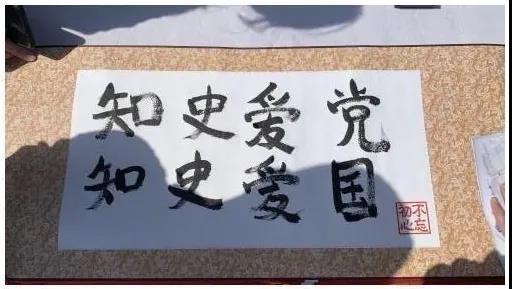 知史爱党
知史爱国
不忘
初心